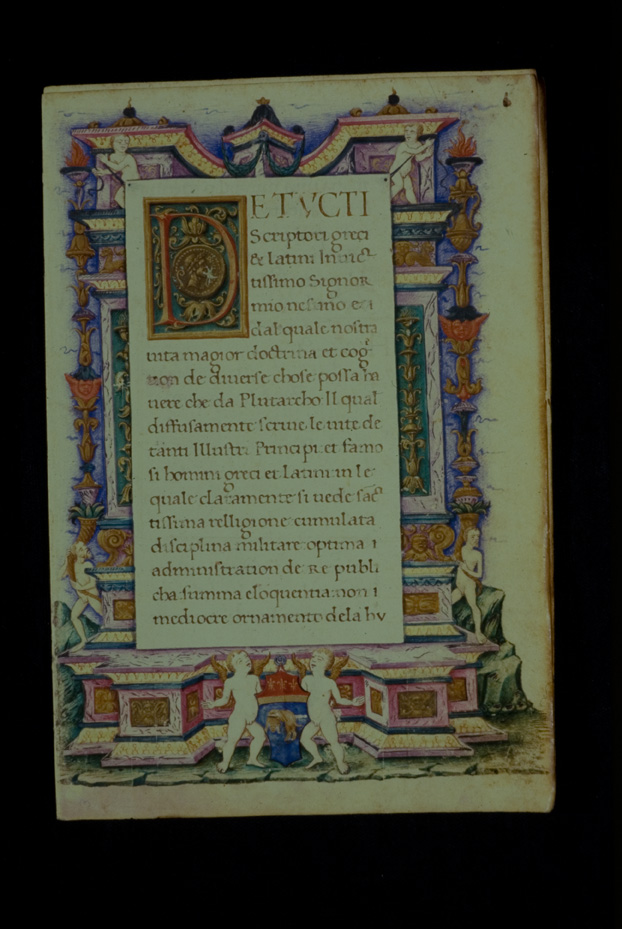 DE TVCTI
Scriptori greci
& latini Inuic
tissimo Signor
mio nessuno e
dal quale nostra
uita magior doctrina et cog
non de diuerse chose possa ha
uere che da Plutarcho Il qual
diffusamente scriue le uite de
tanti Illustri Principi et famo
si homini greci et latini in le
quale claramente si uede sac
tissima relligione cumulata
disciplina militare optima i
administration de Re publi
cha summa eloquentia non i
mediocre ornamento dela hu